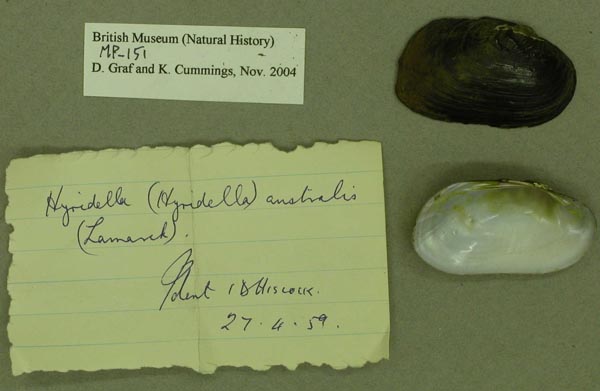 British Museum (Natural History)
MP-151
D. Graf and K. Cummings, Nov. 2004
Hyridella (Hyridella) australis
(Lamarck).
Ident I D Hiscock.
27.4.59.